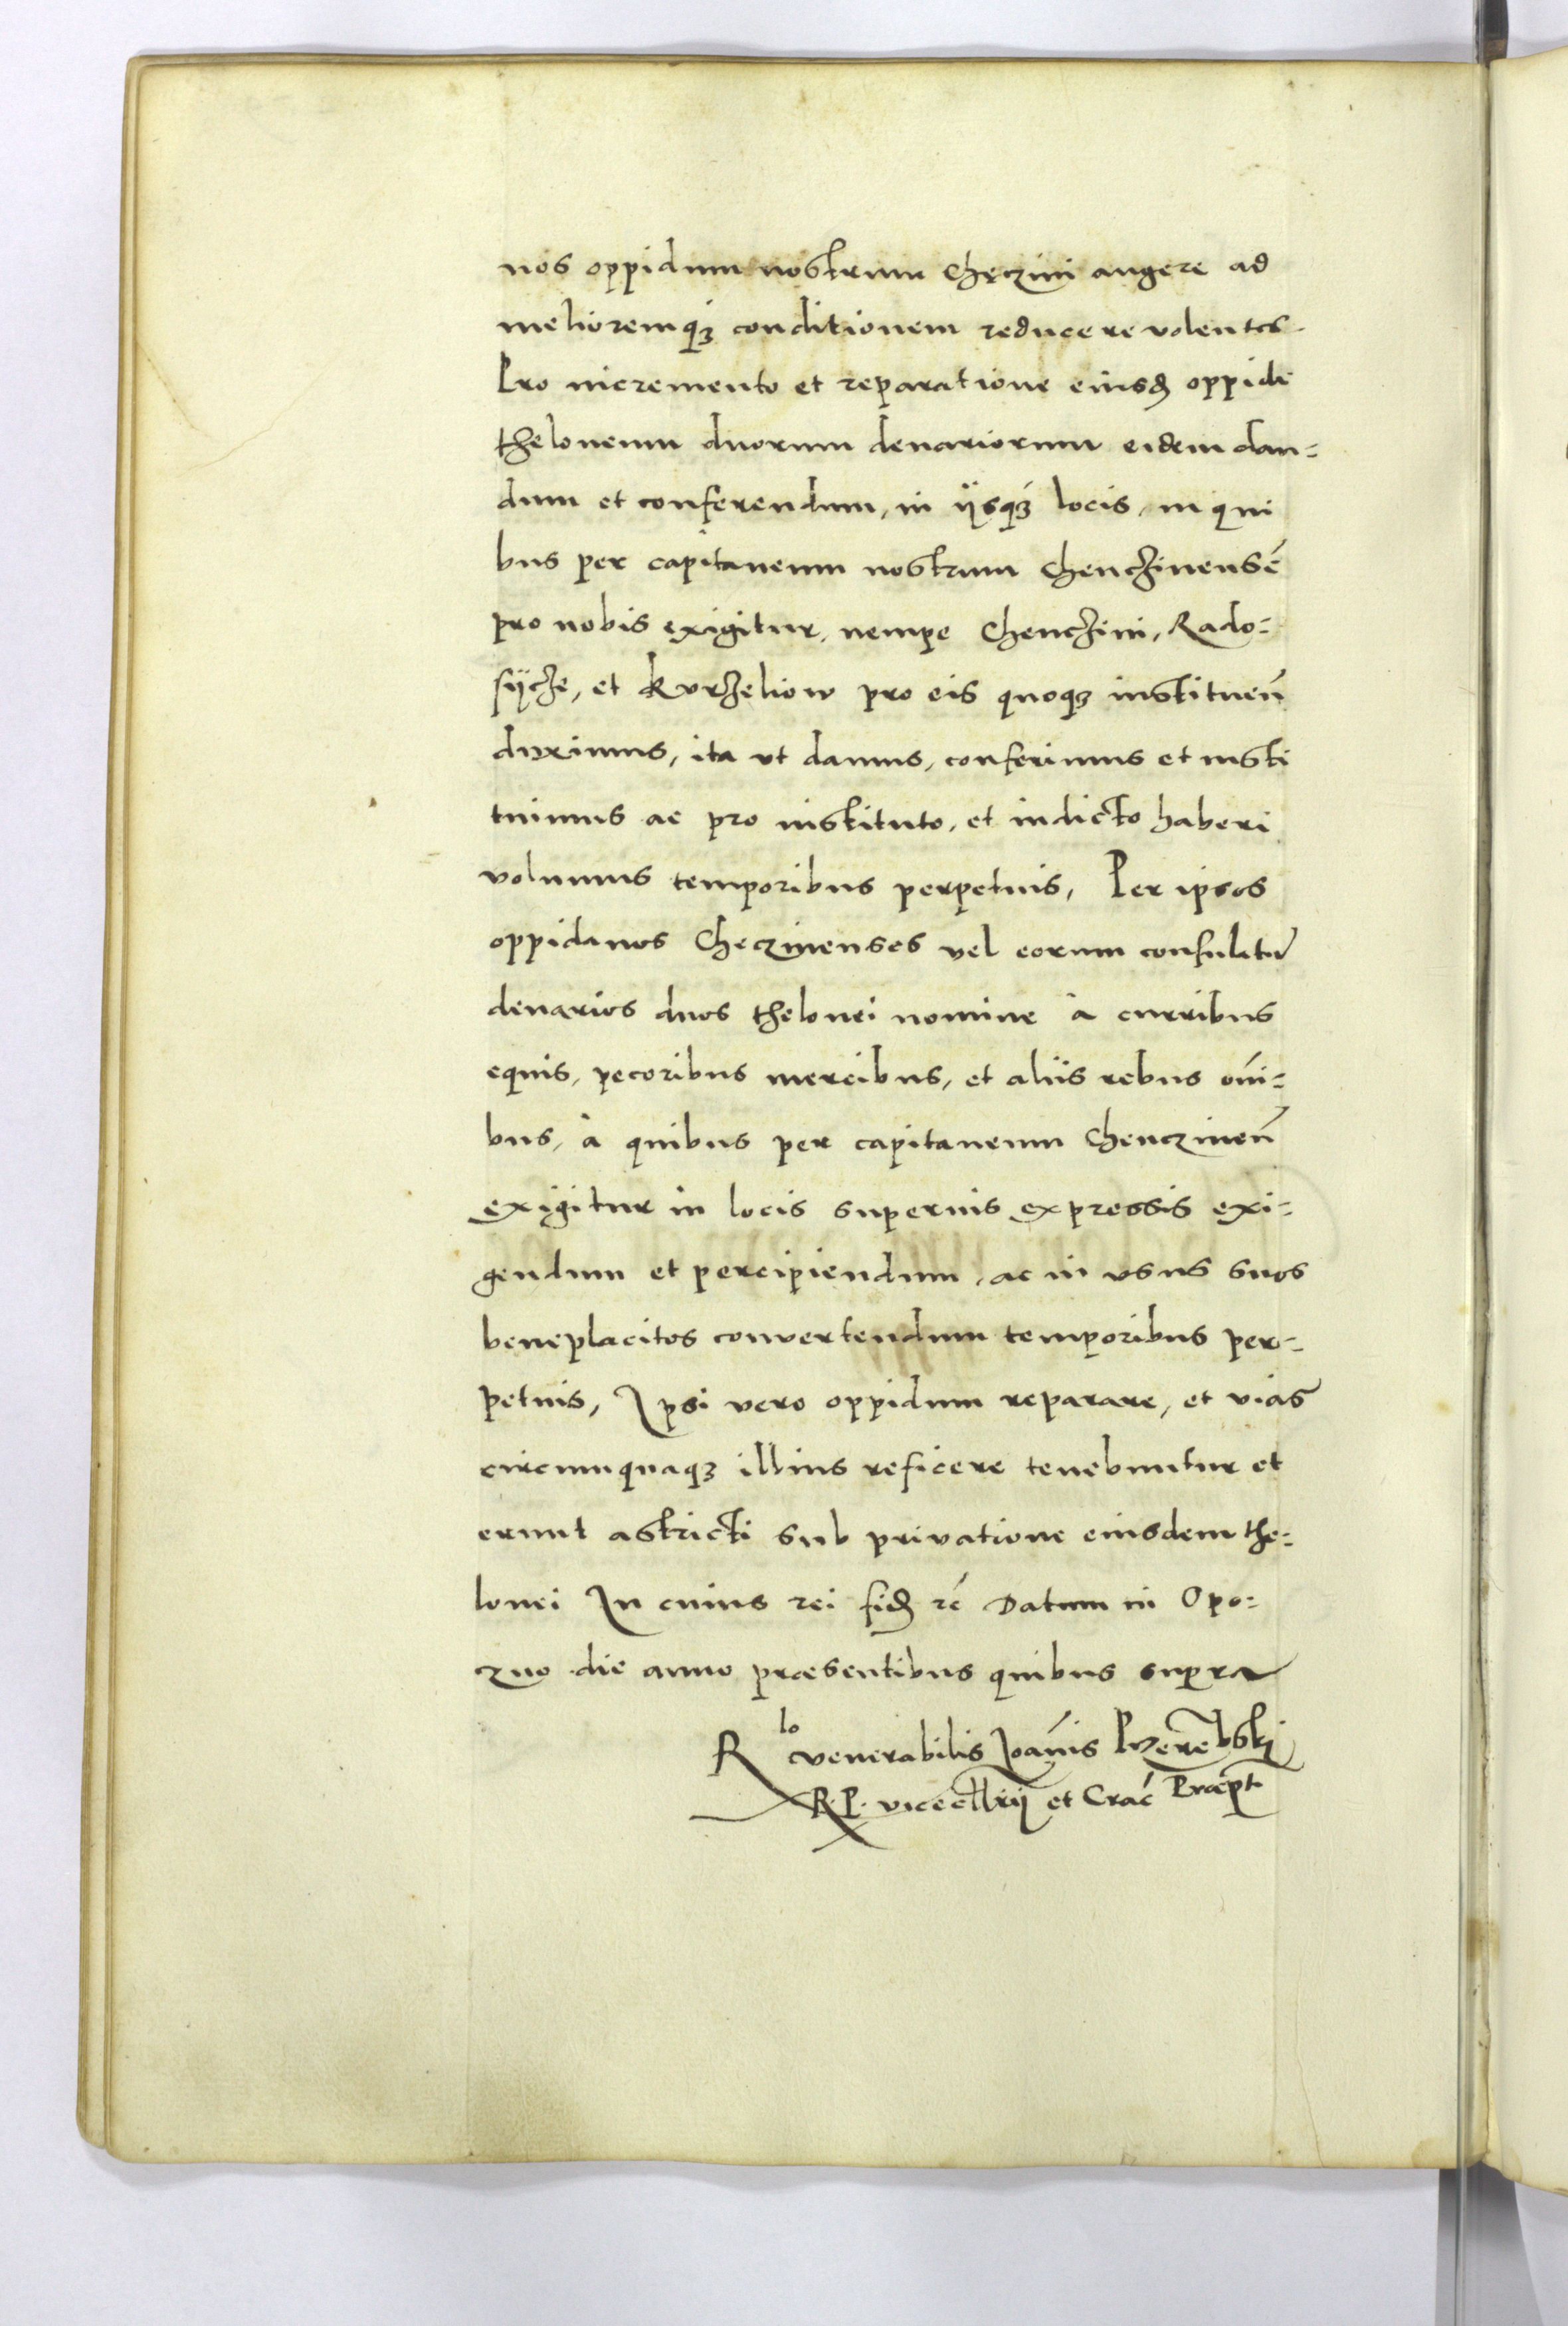 nos oppidum nostrum Chęczini augere ad
melioremqꝫ conditionem reducere volentes.
Pro incremento et reparatione eiusđ oppidi
theloneum duorum denariorum eidem dan-
dum et conferendum, in ÿsqꝫ locis, in qui
bus per capitaneum nostrum Chencʒinensē
pro nobis exigitur, nempe Chencʒini, Rado-
sÿcʒe, et Kurʒeliow pro eis quoqꝫ instituen̄
duximus, ita ut damus, conferimus et insti
tuimus ac pro instituto, et indicto haberi
volumus temporibus perpetuis, Per ipsos
oppidanos Checzinenses vel eorum consulatū
denarios duos thelonei nomine à curribus
equis, pecoribus mercibus, et alÿs rebus oī̄-
bus, à quibus per capitaneum Chenczinen̄
exigitur in locis superius expressis exi-
gendum et percipiendum, ac in usus suos
beneplacitos convertendum temporibus per-
petuis, Ipsi vero oppidum reparare, et vias
circumquaqꝫ illius reficere tenebuntur et
erunt astricti sub privatione eiusdem the-
lonei In cuius rei fiđ rē Datum in Opo-
zno die anno præsentibus quibus supra
R lo venerabilis Joānis Przerēbski
R. P. vicecllrÿ et Crac̄ Præpt